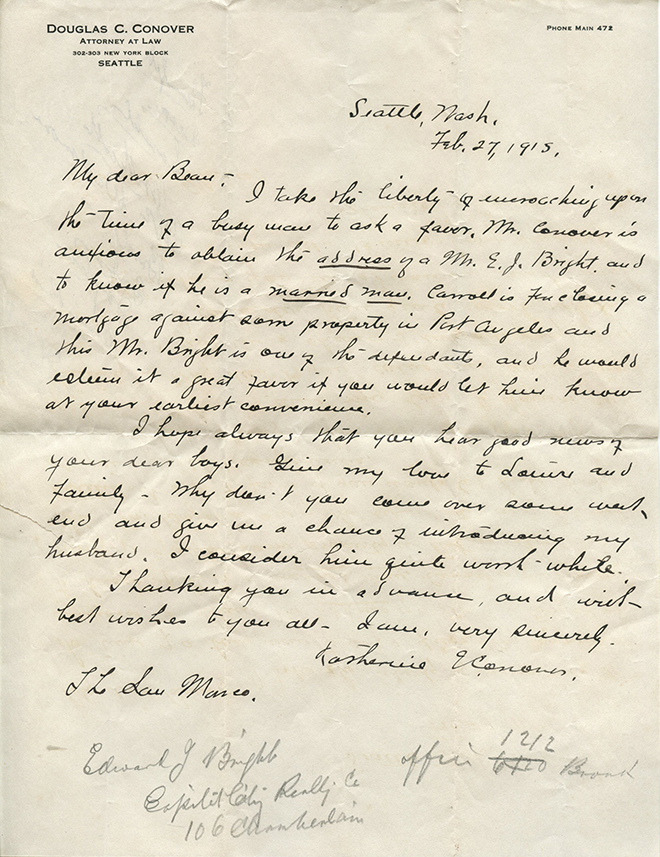 DOUGLAS C. CONOVER
ATTORNEY AT LAW
302-303 NEW YORK BLOCK
SEATTLE
PHONE MAIN 472
Seattle, Wash.
Feb. 27, 1915.
My dear Beau-
I take the liberty of encroaching upon
the time of a busy man to ask a favor. Mr. Conover is
anxious to obtain the address of a Mr. E. J. Bright, and
to know if he is a married man. Carroll is foreclosing a
mortgage against some property in Port Angeles and
this Mr. Bright is one of the defendants, and he would
esteem it a great favor if you would let him know
at your earliest convenience.
I hope always that you hear good news of
your dear boys. Give my love to Louise and
Family - Why don't you come over some week
end and give me a chance of introducing my
husband. I consider him quite worth-while.
Thanking you in advance, and with
best wishes to you all - I am, very sincerely.
Katherine Conover.
The San Marco.
Edward J Bright
Capital City Realty Co
106 Chamberlain
office 1212